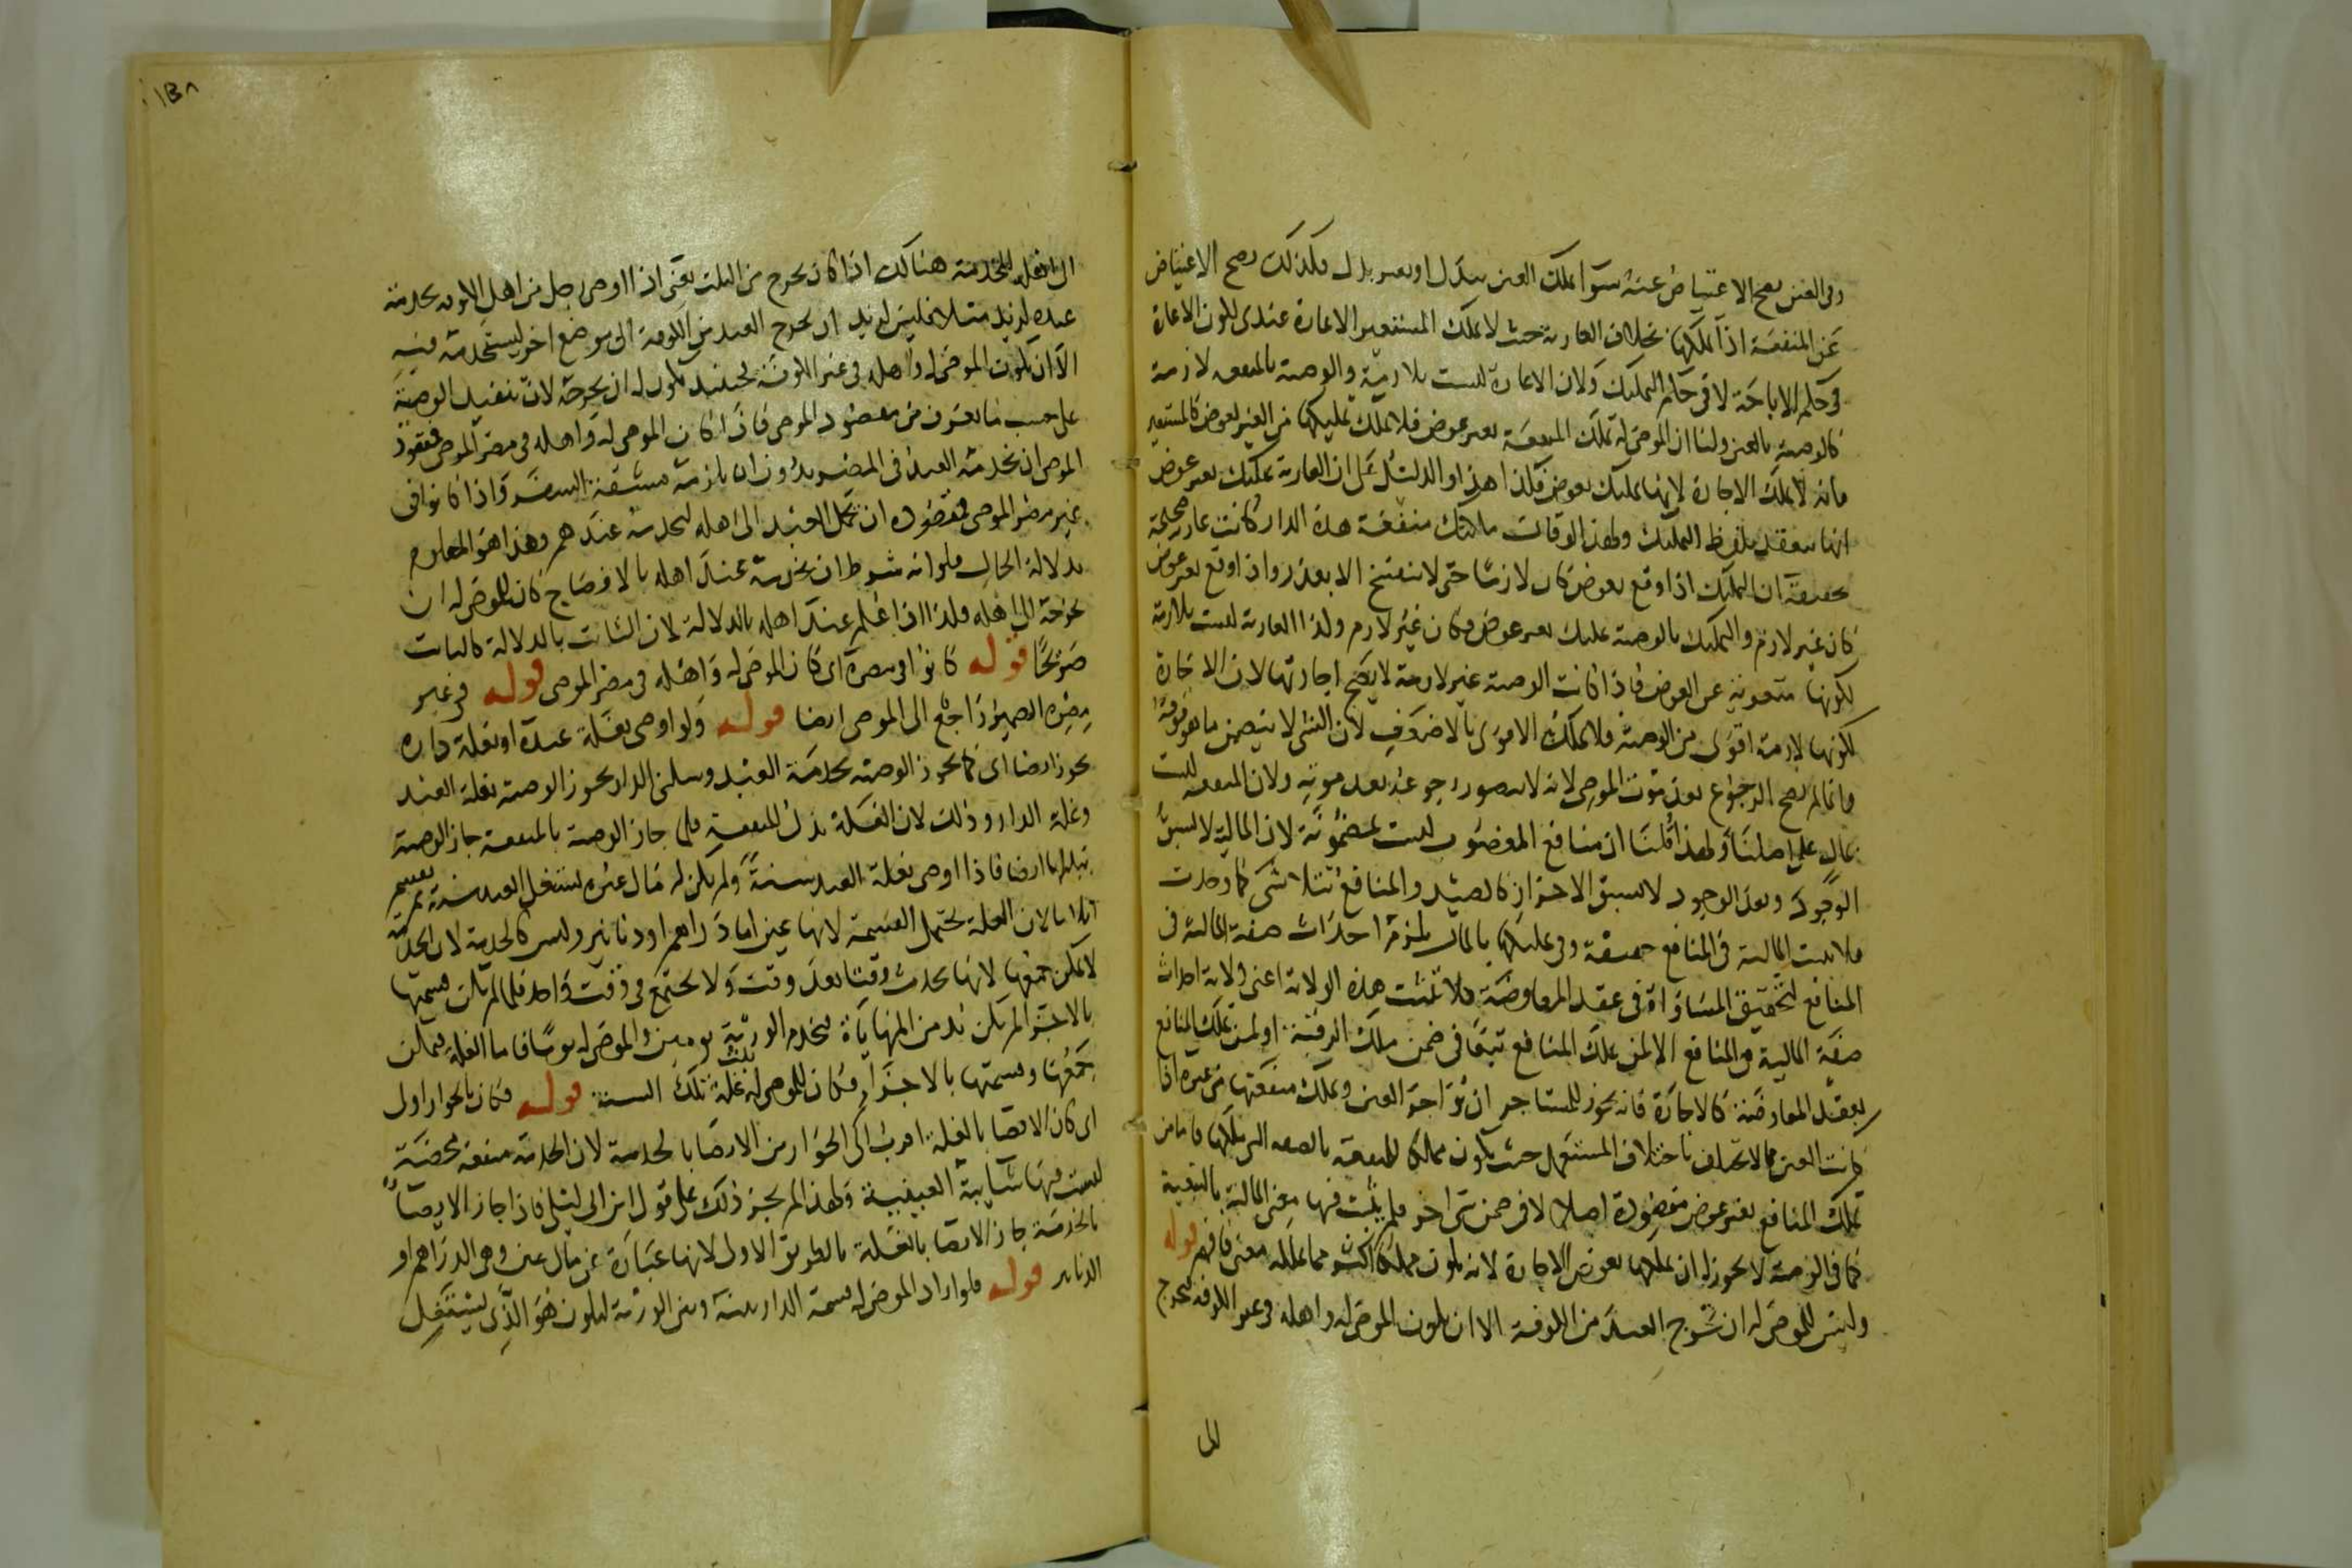 وفى العين يصح الاعتياض عنه سوا ملك العين ببدل او بغير بدل فكذلك يصح الاعتياض
عن المنفعة اذا ملكها بخلاف العارية حيث لا يملك المستعير الاعارة عندى لكون الاعارة
فى حكم الاباحة لا فى حكم التمليك ولان الاعارة ليست بلازمة والوصية بالمنفعه لازمة
كالوصية بالعين ولنا ان الموصى له تملك المنفعة بغير عوض فلا يملك تمليكها من الغير بعوض كالمستعير
فانه لا يملك الاجارة لانها تمليك بعوض فكذا هذا والدليل على ان العارية تمليك بغير عوض
انها تنعقد بلفظ التمليك ولهذا لو قال ملكتك منفعة هذه الدار كانت عارية صحيحة
تحقيقه ان التمليك اذا وقع بعوض كان لازما حتى لا ينفسخ الا بعذر واذا وقع بغير عوض
كان غير لازم والتمليك بالوصية تمليك بغير عوض فكان غير لازم ولذا العارية ليست بلازمة
لكونها متعرية عن العوض فاذا كانت الوصية غير لازمة لا يصح اجارتها لان الاجارة
لكونها لازمة اقوى من الوصية فلا يملك الاقوى بالاضعف لان الشى لا يتضمن ما فوقه
وانما لم يصح الرجوع بعد موت الموصى لانه لا يتصور رجوعه بعد موته ولان المنفعه ليست
بمال على اصلنا ولهذا قلنا ان منافع المغصوب ليست بمضمونة لان المالية لا تسبق
الوجود وبعد الوجود لا تسبق الاحراز كالصيد والمنافع تتلاشى كما وجدت
فلا تثبت المالية فى المنافع حقيقة وفى تمليكها بالمال يلزمه احداث صفة المالية فى
المنافع لتحقيق المساواة فى عقد المعاوضة فلا تثبت هذه الولاية اعنى ولاية احداث
صفة المالية فى المنافع الا لمن يملك المنافع تبعا فى ضمن ملك الرقبة او لمن تملك المنافع
بعقد المعاوضة كالاجارة فانه يجوز للمستاجر ان يؤاجر العين ويملك منفعتها من غيره اذا
كانت العين مما لا يختلف باختلاف المستعمل حيث يكون مملكا للمنفعة بالصفه التى يملكها فاما من
تملك المنافع بغير عوض مقصودة اصلا لا فى ضمن شى اخر فلم يثبت فيها معنى المالية بالتبعية
كما فى الوصية لا يجوز له ان يملكها بعوض الاجارة لانه يكون مملكا اكثر مما تملكه معنى فافهم قوله
وليس للموصى له ان يخرج العبد من الكوفة الا ان يكون الموصى له واهله فى غير الكوفة فيخرجه
الى
١٣٨
الى اهله للخدمة هنالك اذا كان يخرج من الثلث يعنى اذا اوصى رجل من اهل الكوفه بخدمة
عبده لزيد مثلا فليس لزيد ان يخرج العبد من الكوفة الى موضع اخر ليستخدمه فيه
الا ان يكون الموصى له واهله فى غير الكوفة فحينئذ يكون له ان يخرجه لان تنفيذ الوصية
على حسب ما يعرف من مقصود الموصى فاذا كان الموصى له واهله فى مصر الموصى فمقصود
الموصى ان يخدمه العبد فى المصر بدون ان يلزمه مشقة السفر واذا كانوا فى
غير مصر الموصى فمقصوده ان يحمل العبد الى اهله ليخدمه عندهم وهذا هو المعلوم
بدلالة الحال فلو انه شرط ان يخدمه عند اهله بالافصاح كان للموصى له ان
يخرجه الى اهله فلذا اذا علم عند اهله بالدلالة لان الثابت بالدلالة كالثابت
صريحا قوله كانوا فى مصره اى كان الموصى له واهله فى مصر الموصى قوله فى غير
مصره الضمير راجع الى الموصى ايضا قوله ولو اوصى بغلة عبده او بغلة داره
يجوز ايضا اى كما يجوز الوصية بخدمة العبد وسكنى الدار يجوز الوصية بغلة العبد
وغلة الدار وذلك لان الغلة بدل المنفعة فلما جاز الوصية بالمنفعة جاز الوصية
ببدلها ايضا فاذا اوصى بغلة العبد سنة ولم يكن له مال غيره يستغل العبد سنة ثم يقسم
اثلاثا لان الغلة تحتمل القسمة لانها عين اما دراهم او دنانير وليس كالخدمة لان الخدمة
لا يمكن جمعها لانها تحدث وقتا بعد وقت ولا تجتمع فى وقت واحد فلما لم يكن قسمتها
بالاجزا لم يكن بد من المهاياة فيخدم الورثة يومين والموصى له يوما فاما الغلة فيمكن
جمعها وقسمتها بالاجزا فكان للموصى له ثلث غلة تلك السنة قوله فكان بالجواز اولى
اى كان الايصا بالغلة اقرب الى الجواز من الايصا بالخدمة لان الخدمة منفعة محضة
ليست فيها شايبة العينية ولهذا لم يجز ذلك على قول ابن ابى ليلى فاذا جاز الايصا
بالخدمة جاز الايصا بالغلة بالطريق الاولى لانها عبارة عن مال عين وهى الدراهم او
الدنانير قوله فلو اراد الموصى له قسمة الدار بينه وبين الورثة ليكون هو الذى يستغل